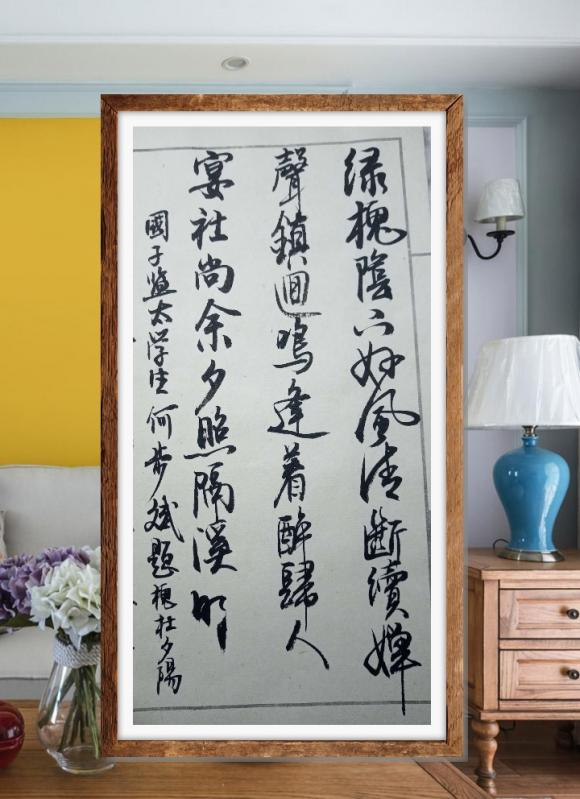 绿槐陰下好風清斷續婵
聲鎮迴鳴逢着醉歸人
宴社尚余夕照隔溪明
國子監太学生何步斌題槐社夕陽